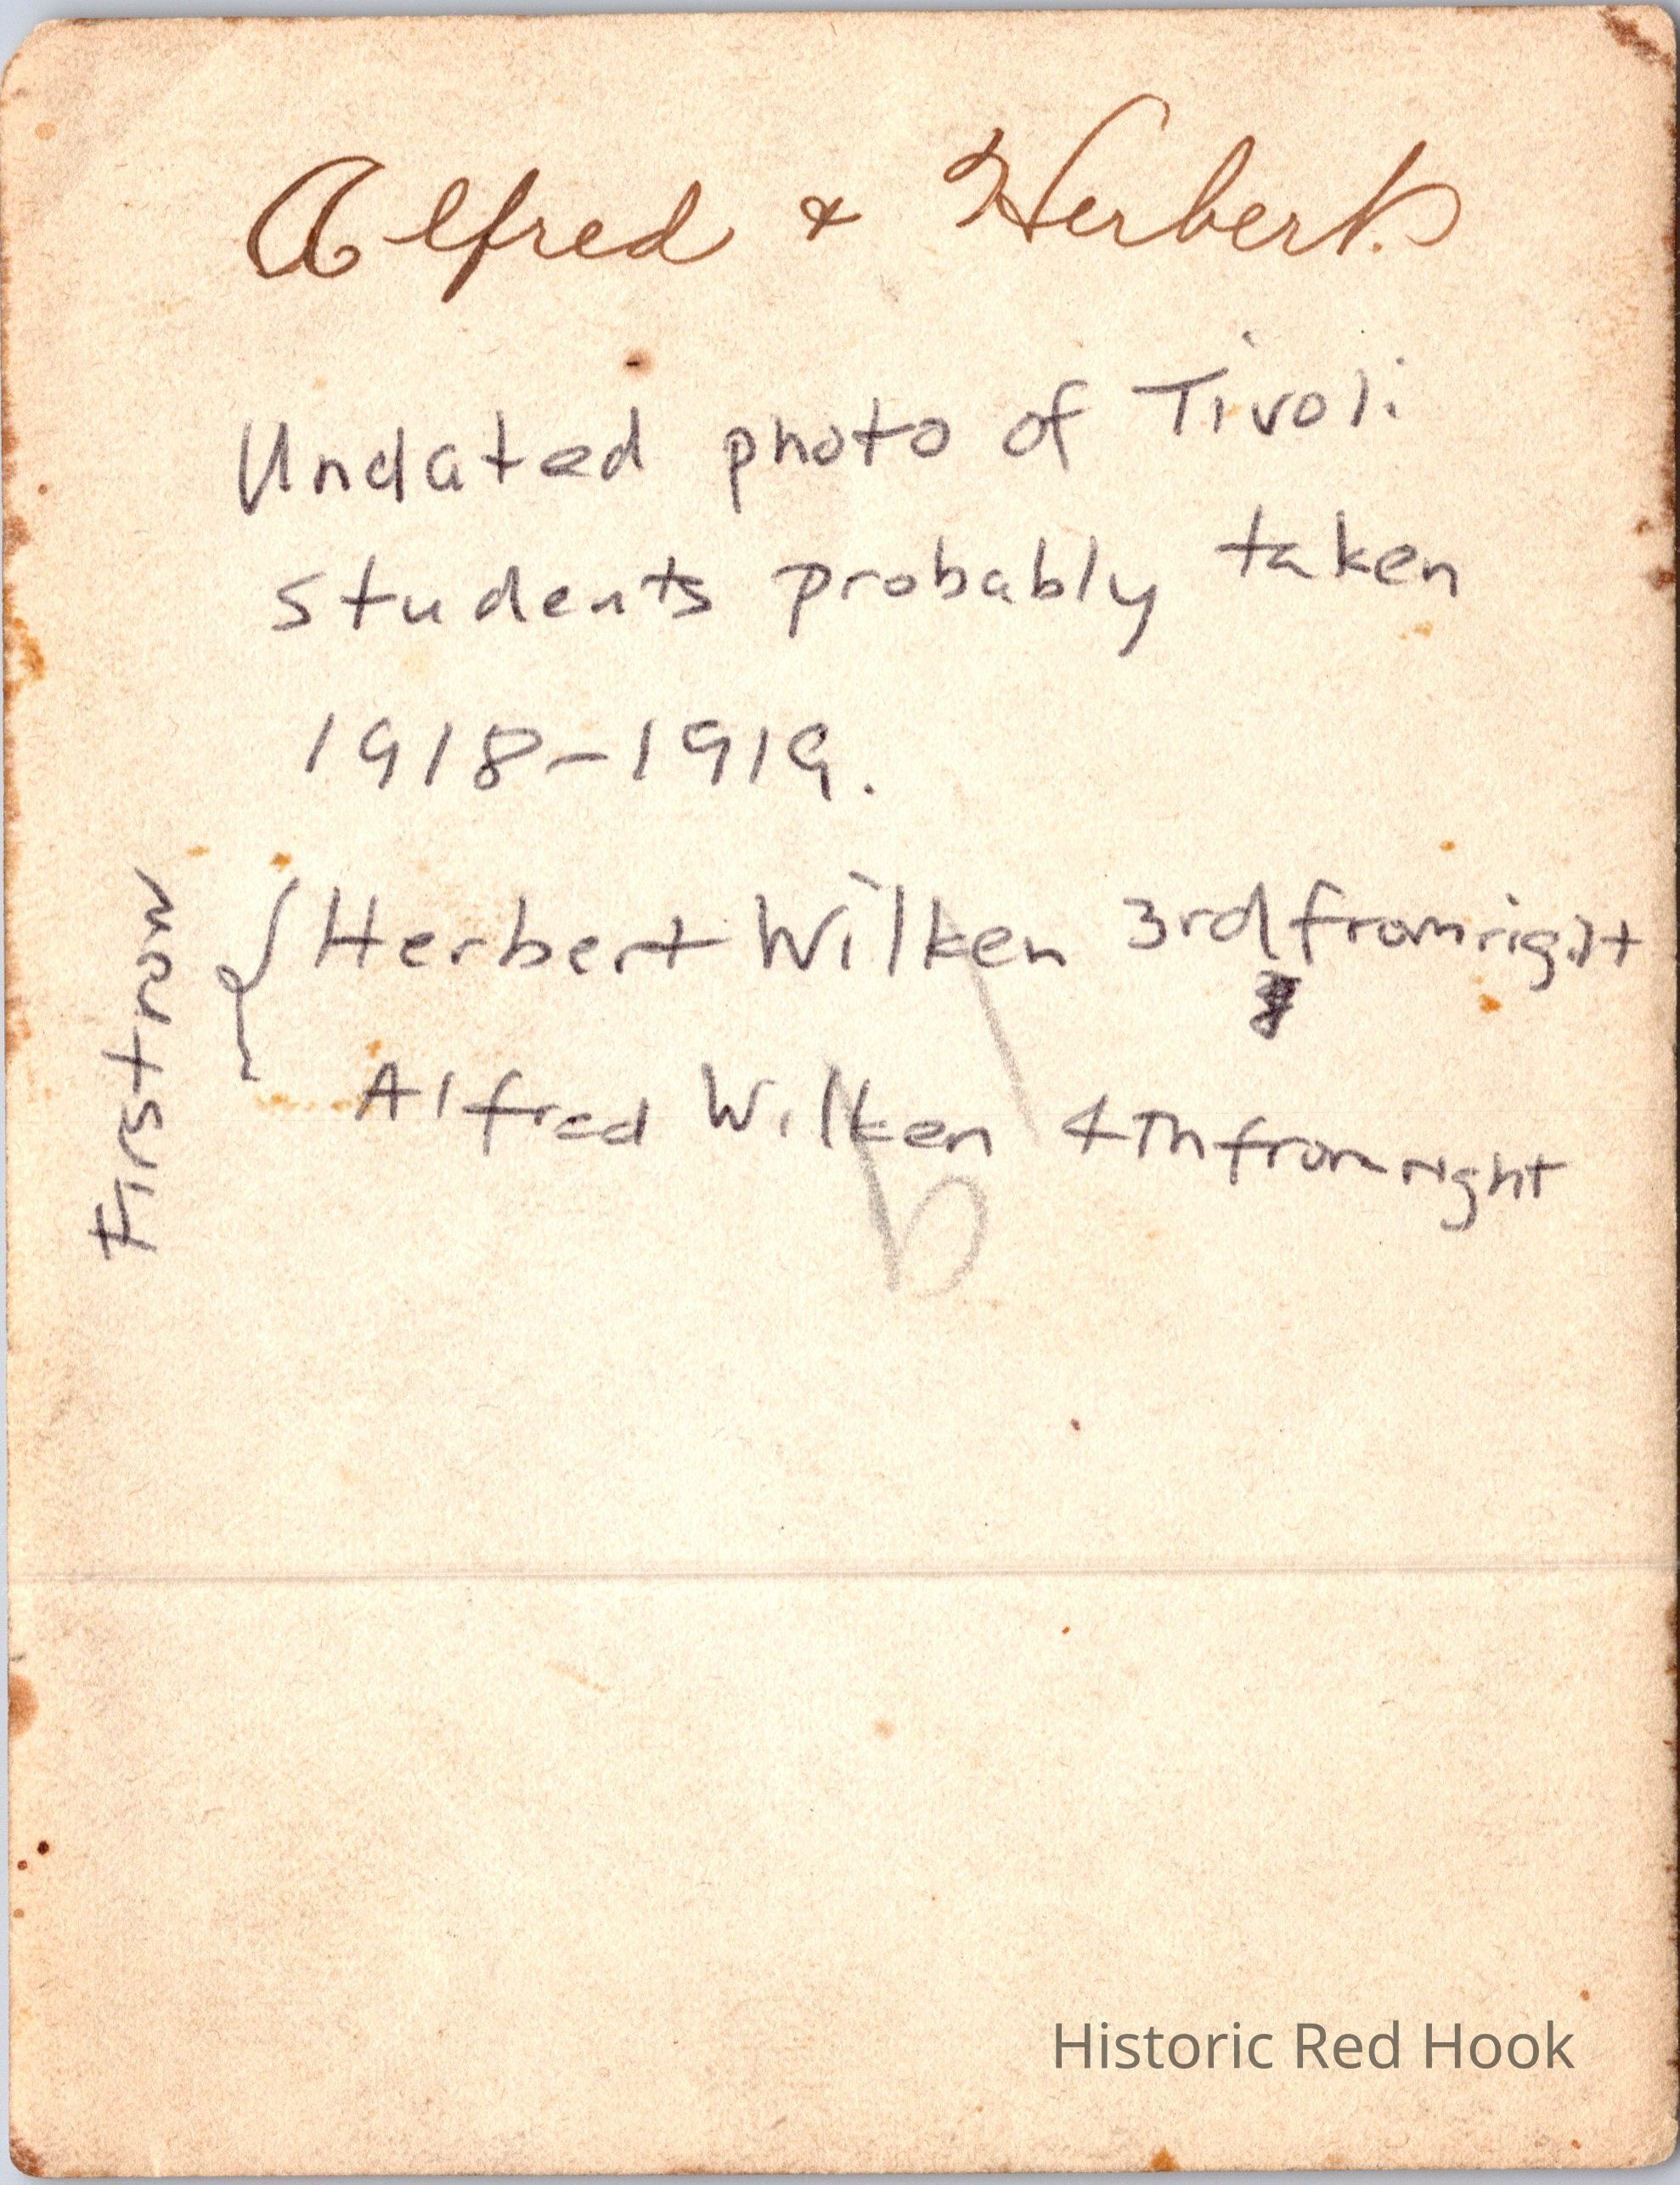 Alfred & Herbert.
Undated photo of Tivoli
students probably taken
1918-1919.
First row
{ Herbert Wilken 3rd from right
Alfred Wilken 4Th from right
Historic Red Hook